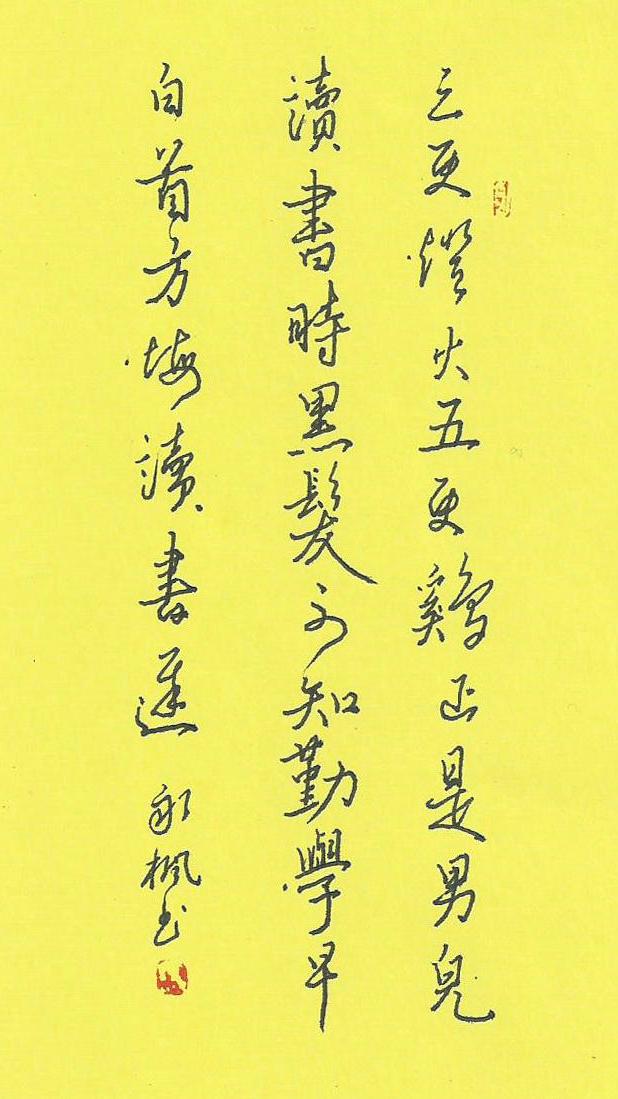 三更燈火五更鷄正是男兒
讀書時黑髮不知勤學早
白首方悔讀書遲 永楓书